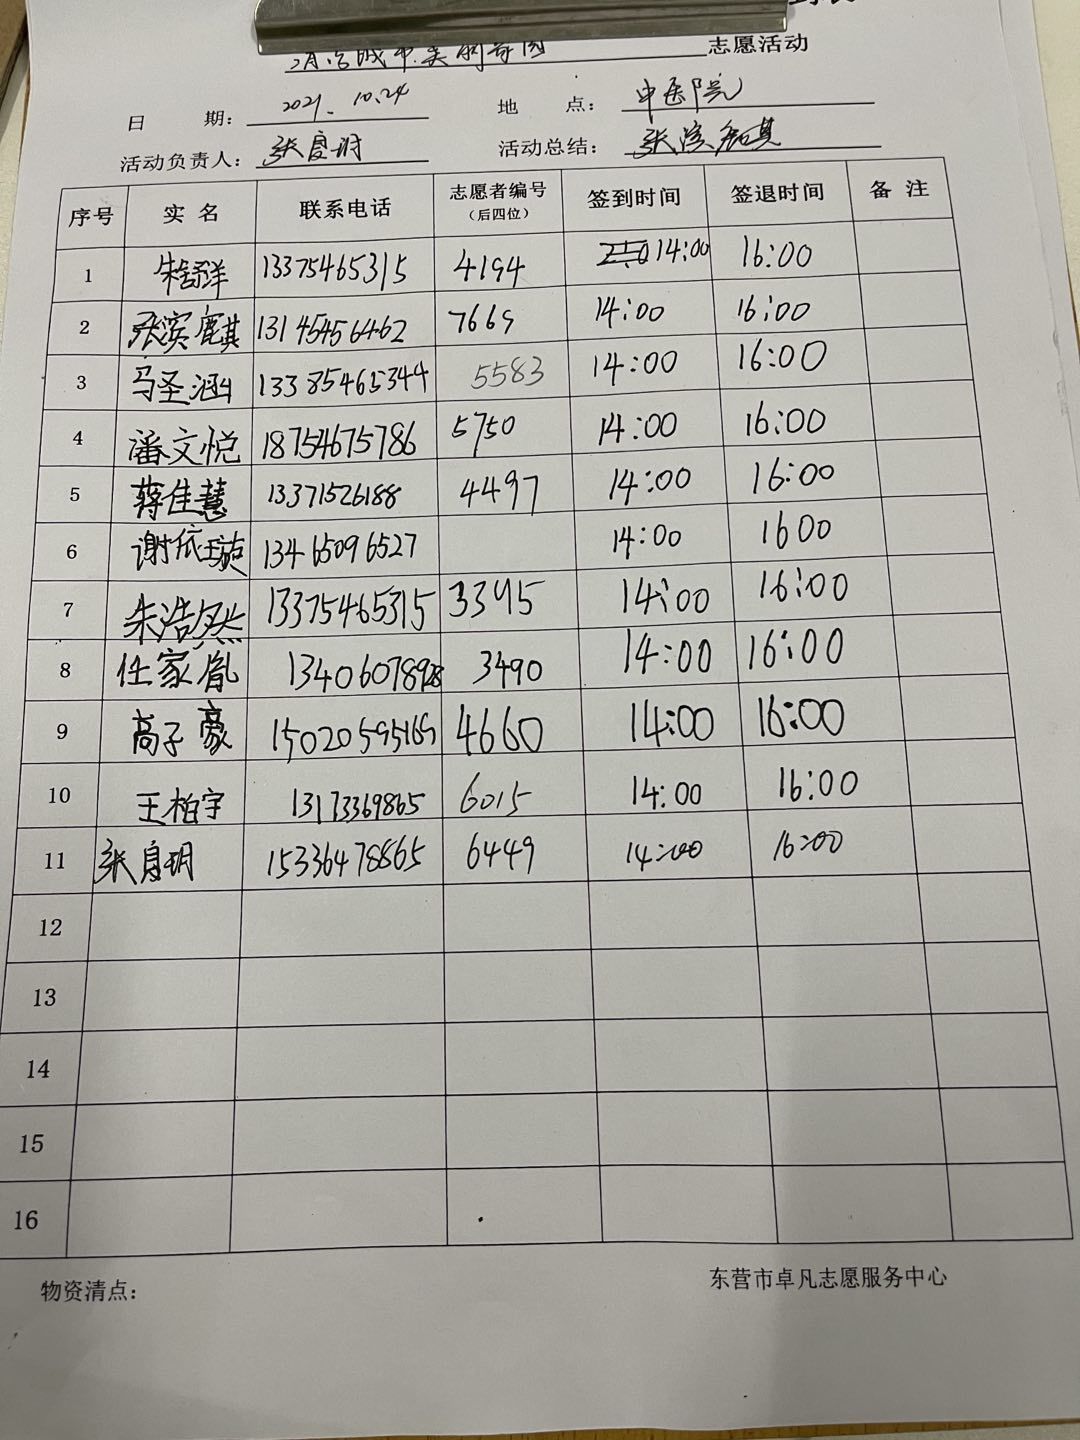 志愿活动
日 期： 2021. 10.24 地 点： 中医院
活动负责人： 张 活动总结： 张滨麒
序号 实 名 联系电话 志愿者编号（后四位） 签到时间 签退时间 备 注
1 13375465315 4194 14:00 16:00
2 张滨麒 13145456462 7669 14:00 16:00
3 马圣涵 13385465344 5583 14:00 16:00
4 潘文悦 18754675786 5750 14:00 16:00
5 蒋佳慧 13371526188 4497 14:00 16:00
6 谢依璇 13465096527 14:00 1600
7 朱浩然 13375465315 3395 14:00 16:00
8 任家胤 13406078928 3490 14:00 16:00
9 高子豪 15020595169 4660 14:00 16:00
10 王柏宇 13173369865 6015 14:00 16:00
11 张 玥 15336478865 6449 14:00 16:00
12
13
14
15
16
物资清点：
东营市卓凡志愿服务中心